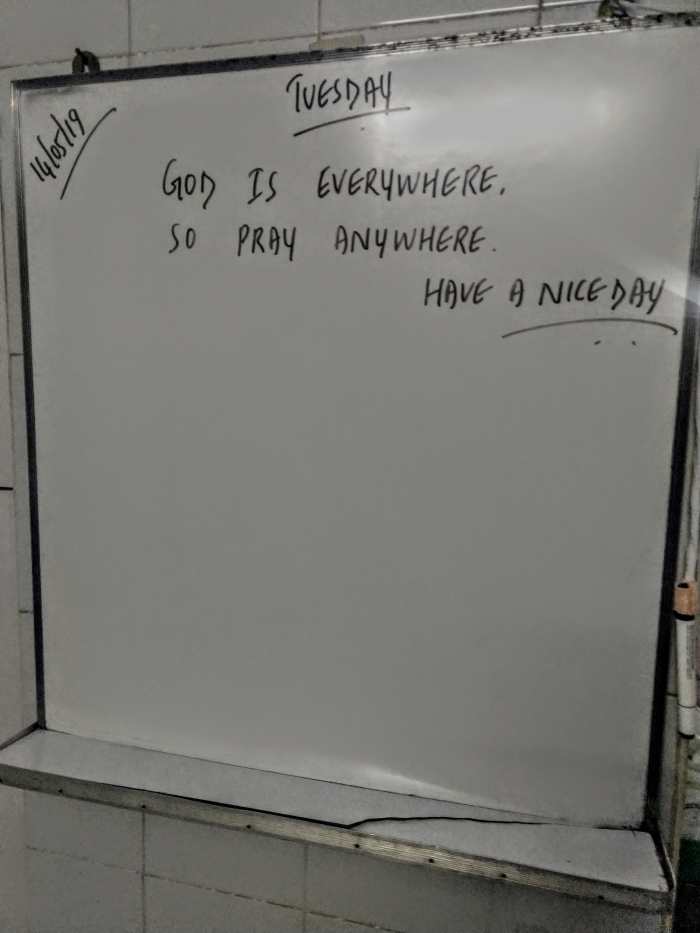 TUESDAY
14/05/19
GOD IS EVERYWHERE.
SO PRAY ANYWHERE.
HAVE A NICE DAY